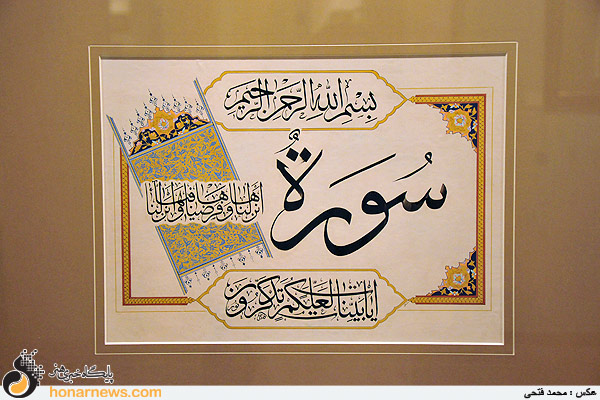 بسم الله الرحمن الرحيم
سُورَةٌ
انزلناها وفرضناها وانزلنا فيها
ايات بينات لعلكم تذكرون
پایگاه خبری هنر
honarnews.com
عکس : محمد فتحی